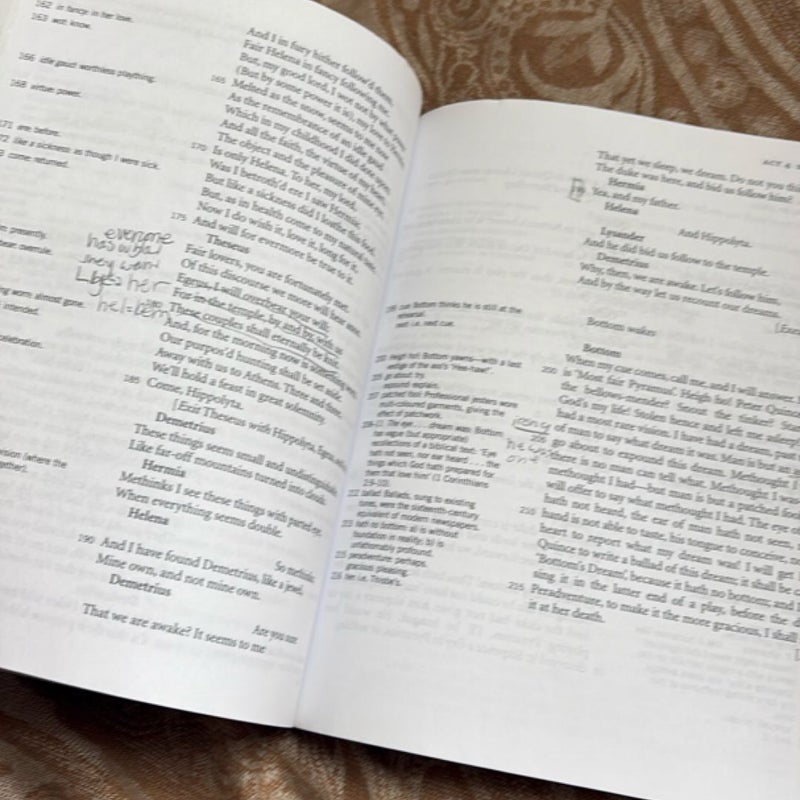 162 in fancy in her love.
163 wot know.
166 idle gaud worthless plaything.
168 virtue power.
171 ere before.
72 like a sickness as though I were sick.
3 come returned.
presently.
overrule.
worn almost gone.
intended.
celebration.
(where the
together).
everyone
has what
they want
her
And I in fury hither follow'd them,
Fair Helena in fancy following me.
But, my good lord, I wot not by what power
165 (But by some power it is), my love to
Melted as the snow, seems to me now
As the remembrance of an idle gaud
Which in my childhood I did dote upon;
And all the faith, the virtue of my heart,
170 The object and the pleasure of mine eye,
Is only Helena. To her, my lord,
Was I betroth'd ere I saw Hermia;
But like a sickness did I loathe this food,
But, as in health come to my natural taste,
Now I do wish it, love it, long for it,
175 And will for evermore be true to it.
Theseus
Fair lovers, you are fortunately met.
Of this discourse we more will hear anon.
Egeus, I will overbear your will;
For in the temple, by and by, with us
180 These couples shall eternally be knit.
And, for the morning now is something worn,
Our purpos'd hunting shall be set aside.
Away with us to Athens. Three and three,
We'll hold a feast in great solemnity.
185 Come, Hippolyta.
[Exit Theseus with Hippolyta, Egeus,
Demetrius
These things seem small and undistinguishable,
Like far-off mountains turned into clouds.
Hermia
Methinks I see these things with parted eye,
When everything seems double.
Helena
So methinks
190 And I have found Demetrius, like a jewel,
Mine own, and not mine own.
Demetrius
Are you sure
That we are awake? It seems to me
ACT 4
That yet we sleep, we dream. Do not you think
The duke was here, and bid us follow him?
Hermia
Yea, and my father.
Helena
And Hippolyta.
Lysander
And he did bid us follow to the temple.
Demetrius
Why, then, we are awake. Let's follow him,
And by the way let us recount our dreams.
[Exeunt
Bottom wakes
Bottom
200 When my cue comes, call me, and I will answer.
is 'Most fair Pyramus'. Heigh ho! Peter Quince
the bellows-mender? Snout the tinker?
God's my life! Stolen hence and left me asleep!
had a most rare vision. I have had a dream, past
of man to say what dream it was. Man is but an
205 go about to expound this dream. Methought I
there is no man can tell what. Methought I was
methought I had—but man is but a patched fool
will offer to say what methought I had. The eye of
hath not heard, the ear of man hath not seen,
210 hand is not able to taste, his tongue to conceive,
heart to report what my dream was! I will get
Quince to write a ballad of this dream; it shall be
'Bottom's Dream', because it hath no bottom; and I
sing it in the latter end of a play, before the
215 Peradventure, to make it the more gracious, I shall
it at her death.
cue Bottom thinks he is still at the
rehearsal.
next i.e. next cue.
Heigh ho! Bottom yawns—with a last
vestige of the ass's 'Hee-haw'.
go about try.
expound explain.
207 patched fool Professional jesters wore
multi-coloured garments, giving the
effect of patchwork.
The eye . . . dream was Bottom
has vague (but appropriate)
memories of a biblical text: 'Eye
hath not seen, nor ear heard . . . the
things which God hath prepared for
them that love him' (1 Corinthians
2:9–10).
212 ballad Ballads, sung to existing
tunes, were the sixteenth-century
precursors of modern newspapers.
213 hath no bottom a) is without
foundation in reality; b) is
unfathomably profound.
215 peradventure perhaps.
gracious pleasing.
216 her i.e. Thisbe's.